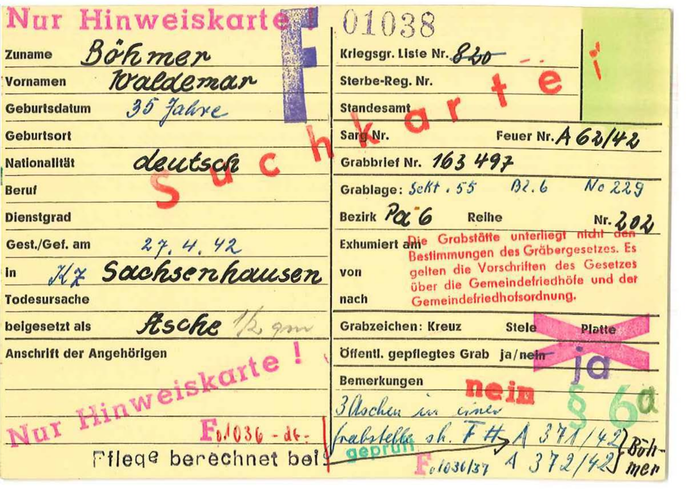 Nur Hinweiskarte!
F
01038
Zuname Böhmer
Vornamen Waldemar
Geburtsdatum 35 Jahre
Geburtsort
Nationalität deutsch
Beruf
Dienstgrad
Gest./Gef. am 27.4.42
in KZ Sachsenhausen
Todesursache
beigesetzt als Asche 1/2 qm
Anschrift der Angehörigen
Nur Hinweiskarte!
F01036 - dt-
Pflege berechnet bei:
Suchkartei
Kriegsgr. Liste Nr. 820
Sterbe-Reg. Nr.
Standesamt
Sarg Nr. Feuer Nr. A 62/42
Grabbrief Nr. 163 497
Grablage: Sekt. 55 Bz. 6 No 229
Bezirk Pa 6 Reihe Nr. 202
Exhumiert am
von
nach
Die Grabstätte unterliegt nicht den
Bestimmungen des Gräbergesetzes. Es
gelten die Vorschriften des Gesetzes
über die Gemeindefriedhöfe und der
Gemeindefriedhofsordnung.
Grabzeichen: Kreuz Stele Platte
Öffentl. gepflegtes Grab ja/nein ja
Bemerkungen nein § 6d
3 Aschen in einer
Grabstelle sh. F # A 371/42 Böh-
geprüft F01036/37 A 372/42 mer